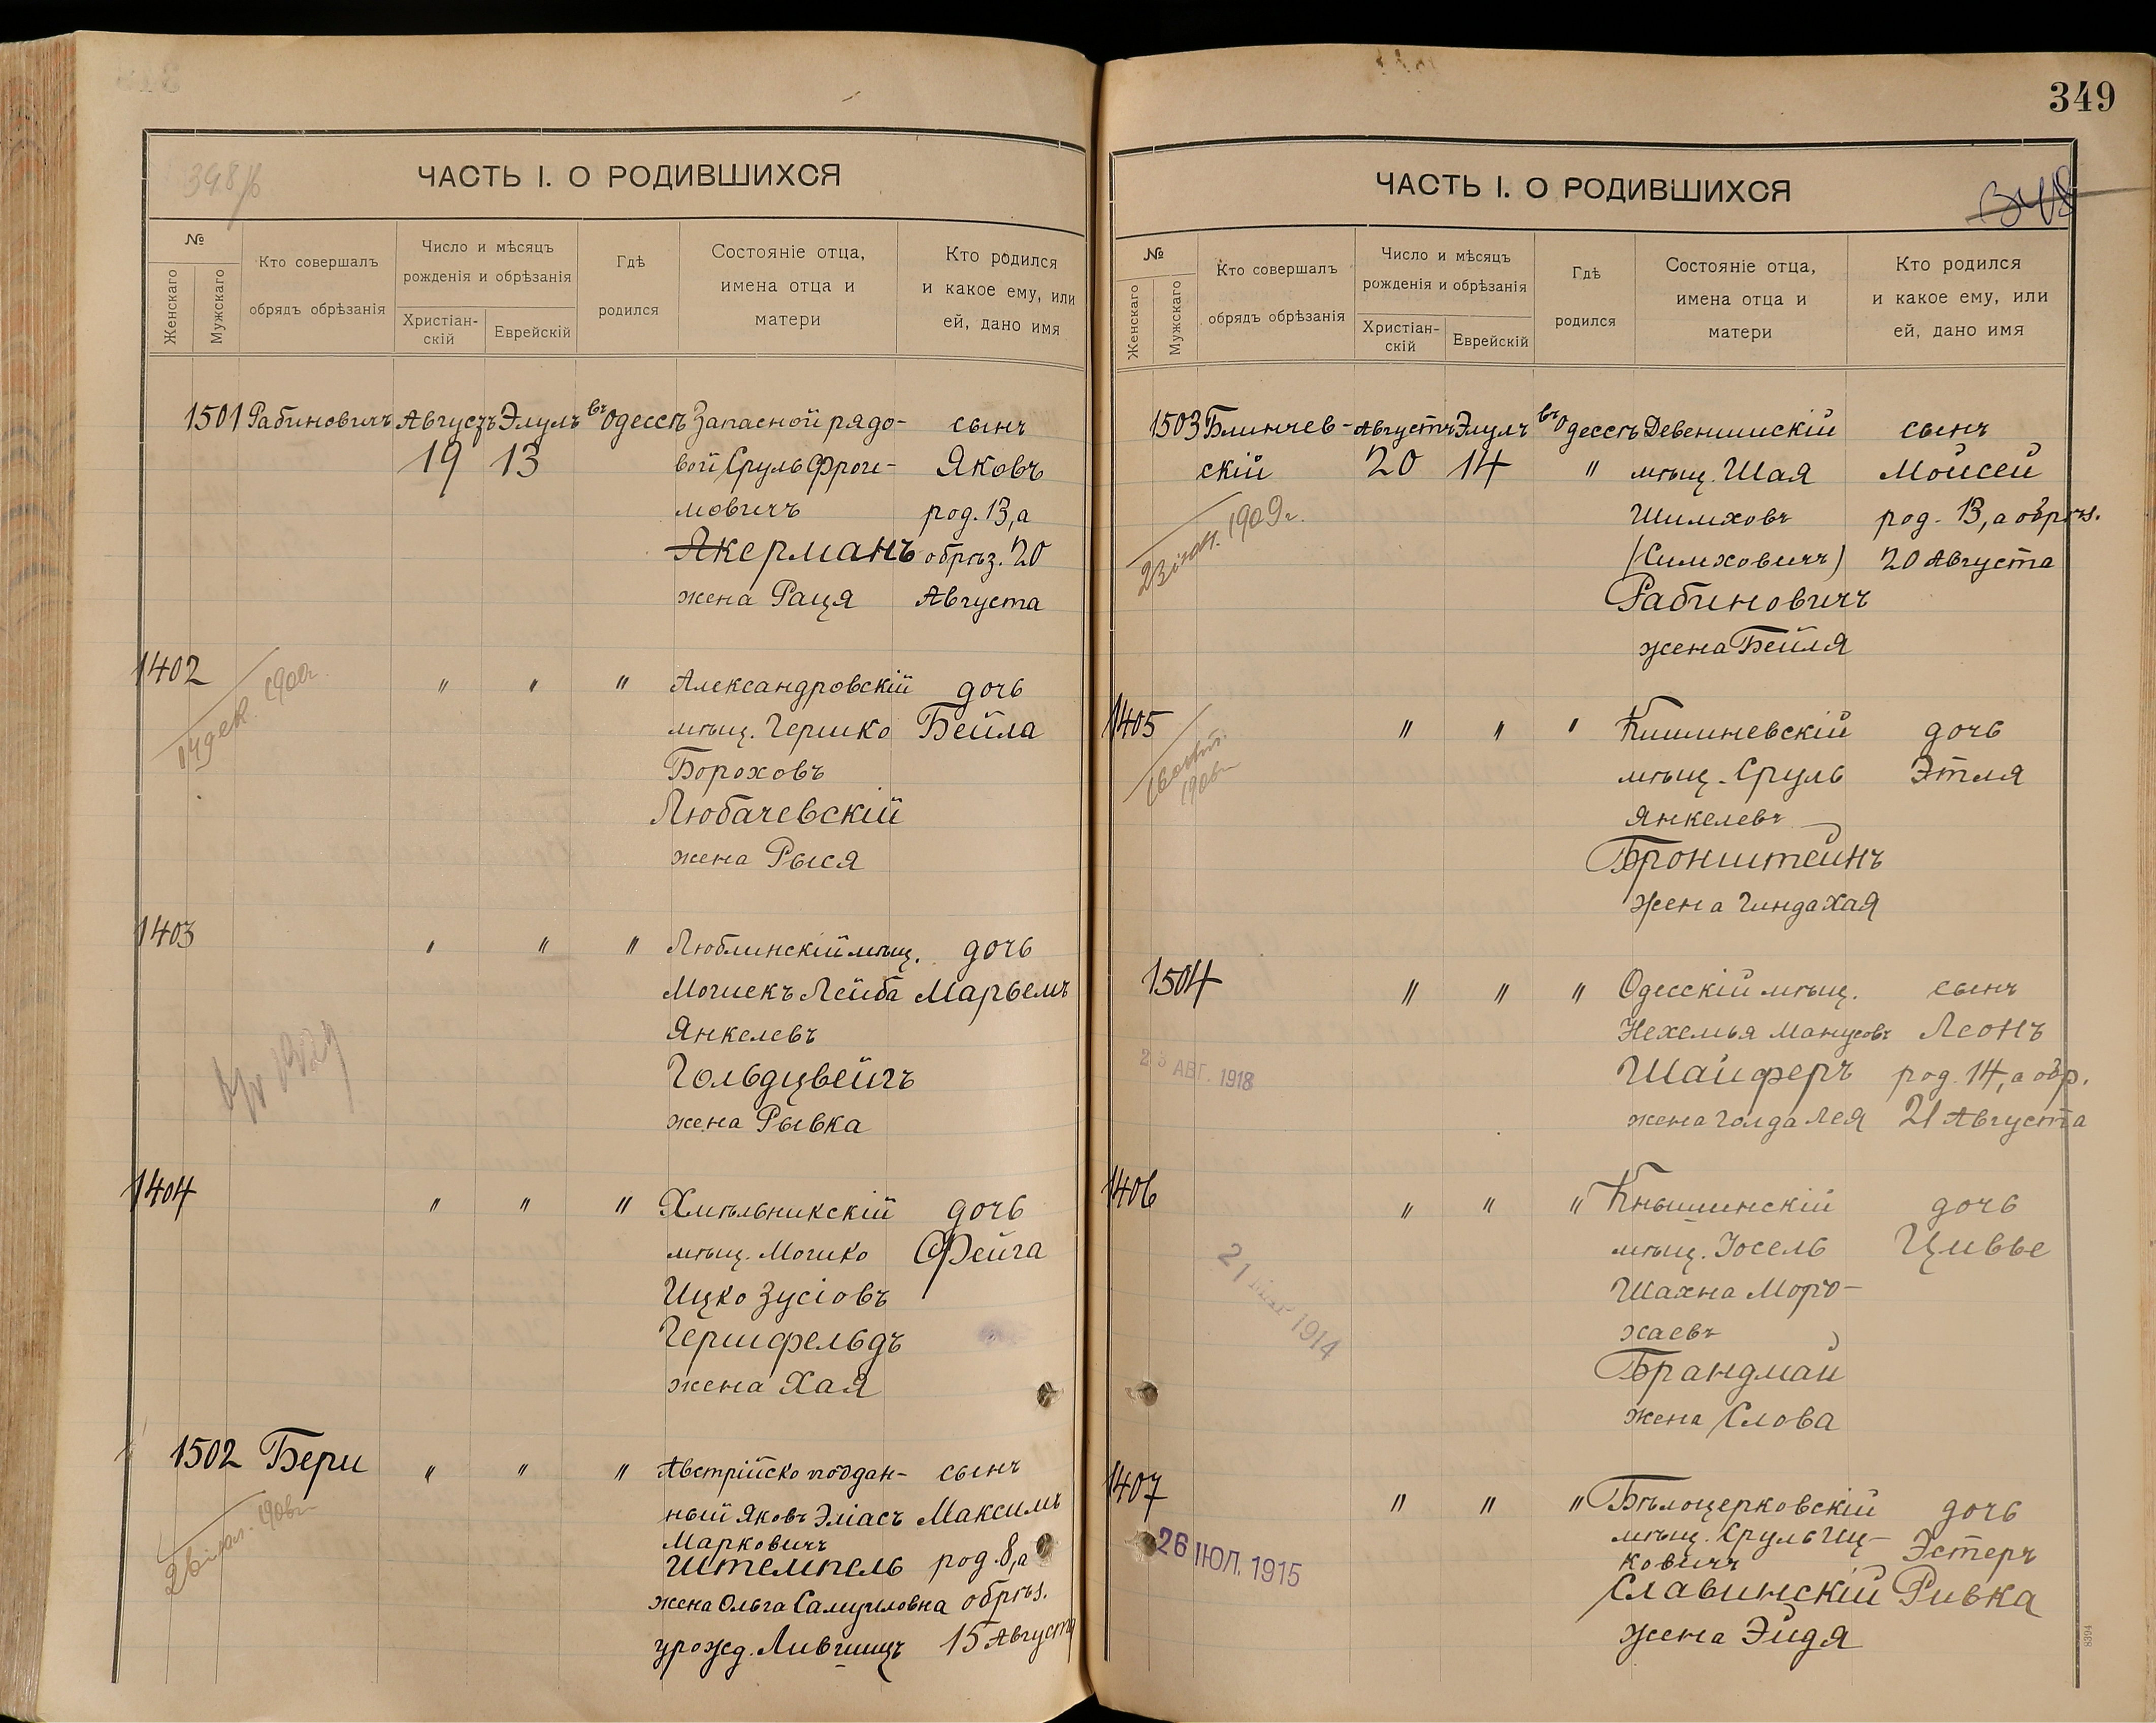 349
ЧАСТЬ I. О РОДИВШИХСЯ
№
Женскаго
Мужскаго
Кто совершалъ
обрядъ обрѣзанія
Число и мѣсяцъ
рожденія и обрѣзанія
Христіан-
скій
Еврейскій
Гдѣ
родился
Состояніе отца,
имена отца и
матери
Кто родился
и какое ему, или
ей, дано имя
1501 Рабиновичъ Августъ Элулъ въ Одессѣ Запасной рядо- сынъ
19 13 вой Сруль Фрои- Яковъ
мовичъ род. 13, а
Якерманъ обрѣз. 20
жена Раця Августа
1402 " " " Александровскій дочь
14 дек. 1900г. мѣщ. Гершко Бейла
Бороховъ
Любачевскій
жена Рыся
1403 " " " Люблинскій мѣщ. дочь
Мошекъ Лейба Марьемъ
Янкелевъ
Гольдцвейгъ
жена Рывка
1404 " " " Хмѣльникскій дочь
мѣщ. Мошко Фейга
Ицко Зусіовъ
Гершфельдъ
жена Хая
1502 Бери " " " Австрійско поддан- сынъ
ный Яковъ Эліасъ Максимъ
Марковичъ
Штемпель род. 8, а
жена Ольга Самуиловна обрѣз.
урожд. Лившицъ 15 Август
ЧАСТЬ I. О РОДИВШИХСЯ
348
№
Женскаго
Мужскаго
Кто совершалъ
обрядъ обрѣзанія
Число и мѣсяцъ
рожденія и обрѣзанія
Христіан-
скій
Еврейскій
Гдѣ
родился
Состояніе отца,
имена отца и
матери
Кто родился
и какое ему, или
ей, дано имя
1503 Блинчев- Августъ Элулъ въ Одессѣ Девенишскій сынъ
скій 20 14 " мѣщ. Шая Мойсей
1909г. Шимховъ род. 13, а обрѣз.
(Симховичъ) 20 Августа
Рабиновичъ
жена Бейля
1405 " " " Кишиневскій дочь
мѣщ. Сруль Этля
Янкелевъ
Бронштейнъ
жена Гинда Хая
1504 " " " Одесскій мѣщ. сынъ
Нехемья Манусовъ Леонъ
23 АВГ. 1918 Шайферъ род. 14, а обр.
жена Голда Лея 21 Августа
1406 " " " Кнышинскій дочь
мѣщ. Іосель Цивье
21 МАР 1914 Шахна Мордо-
хаевъ
Брандман
жена Слова
1407 " " " Бѣлоцерковскій дочь
мѣщ. Сруль Иц- Эстеръ
ковичъ
26 ІЮЛ. 1915 Славинскій Ривка
жена Эйдя
8394